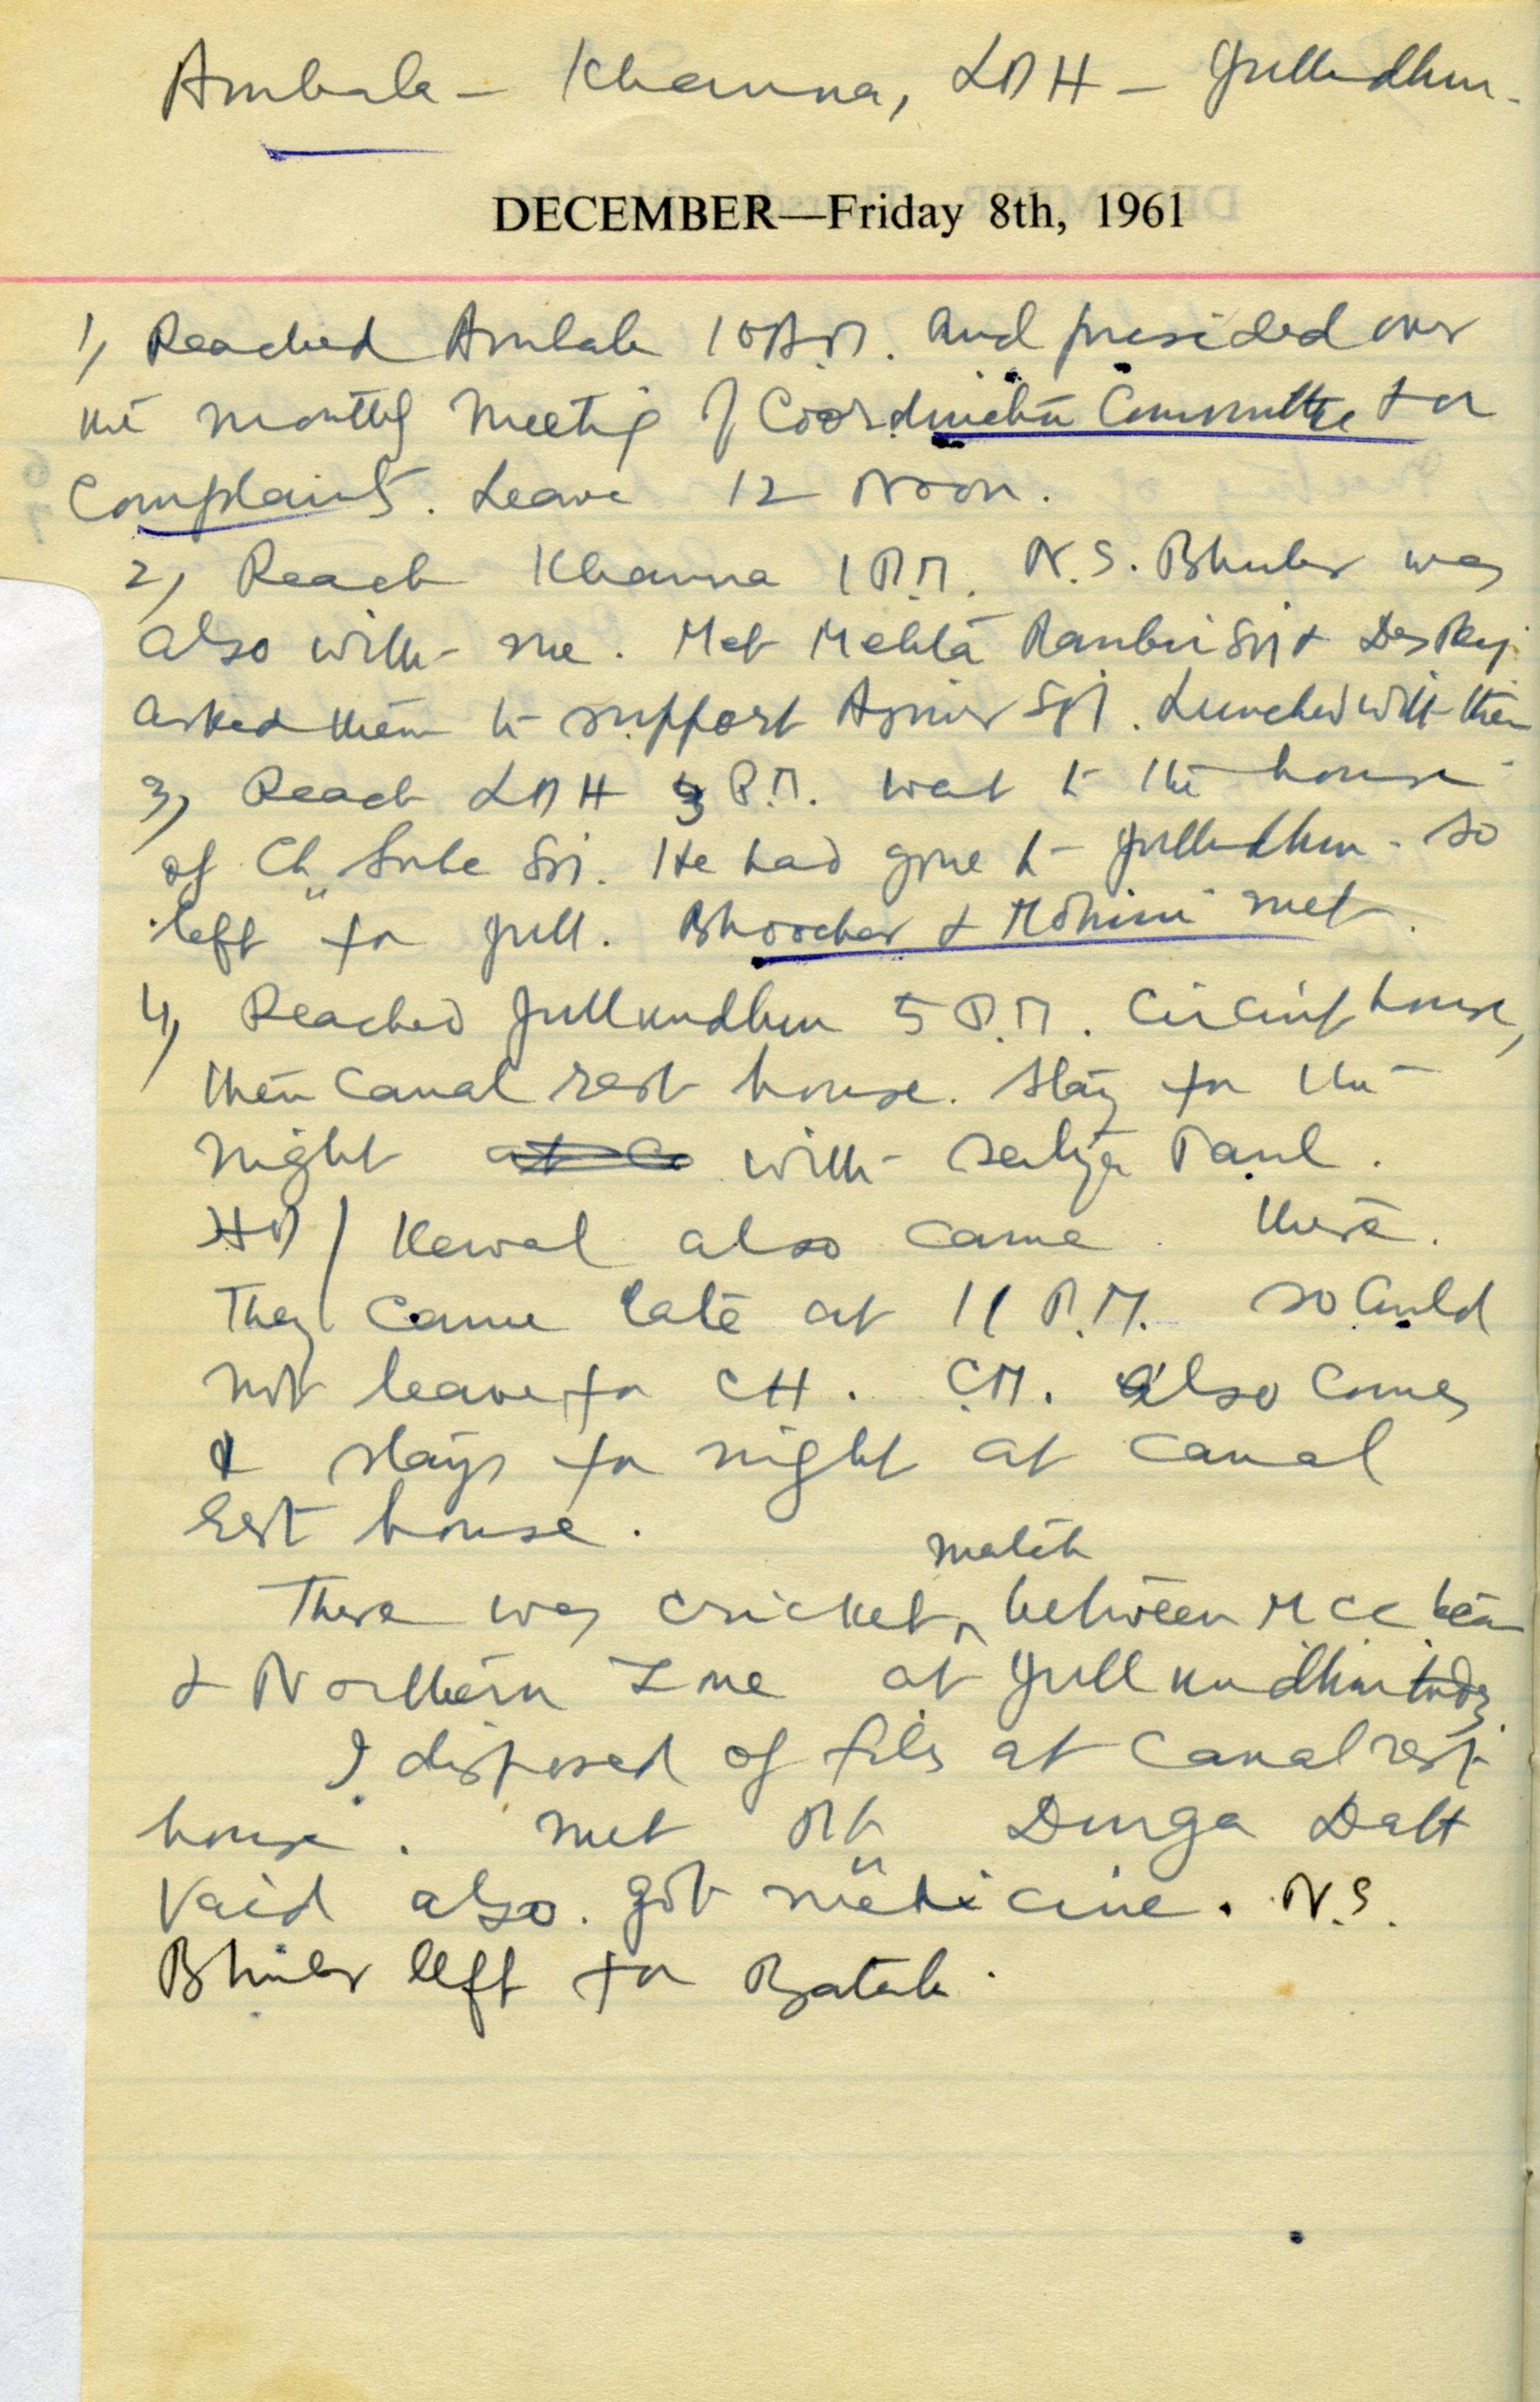 Ambala - Khanna, LDH - Jullundhur.
DECEMBER—Friday 8th, 1961
1, Reached Ambala 10 A.M. and presided over
the monthly meeting of Coordination Committee for
Complaints. Leave 12 Noon.
2, Reach Khanna 1 P.M. N.S. Bhuler was
also with me. Met Mehta Ranbir & Des Raj.
asked them to support. Lunched with them
3, Reach LDH 3 P.M. went to the house
of Ch. He had gone to Jullundhur - so
left for Jull. & Mohini met.
4, Reached Jullundhur 5 P.M. Circuit house,
then Canal rest house. Stay for the
night at Co with Satya Paul.
Kewal also came there.
They came late at 11 P.M. so could
not leave for CH. C.M. also comes
& stays for night at Canal
rest house.
There was cricket match between MCC team
& Northern Zone at Jullundhur today.
I disposed of files at Canal rest
house. met Pt. Durga Datt
Vaid also. got medicine. N.S.
Bhuler left for Batala.